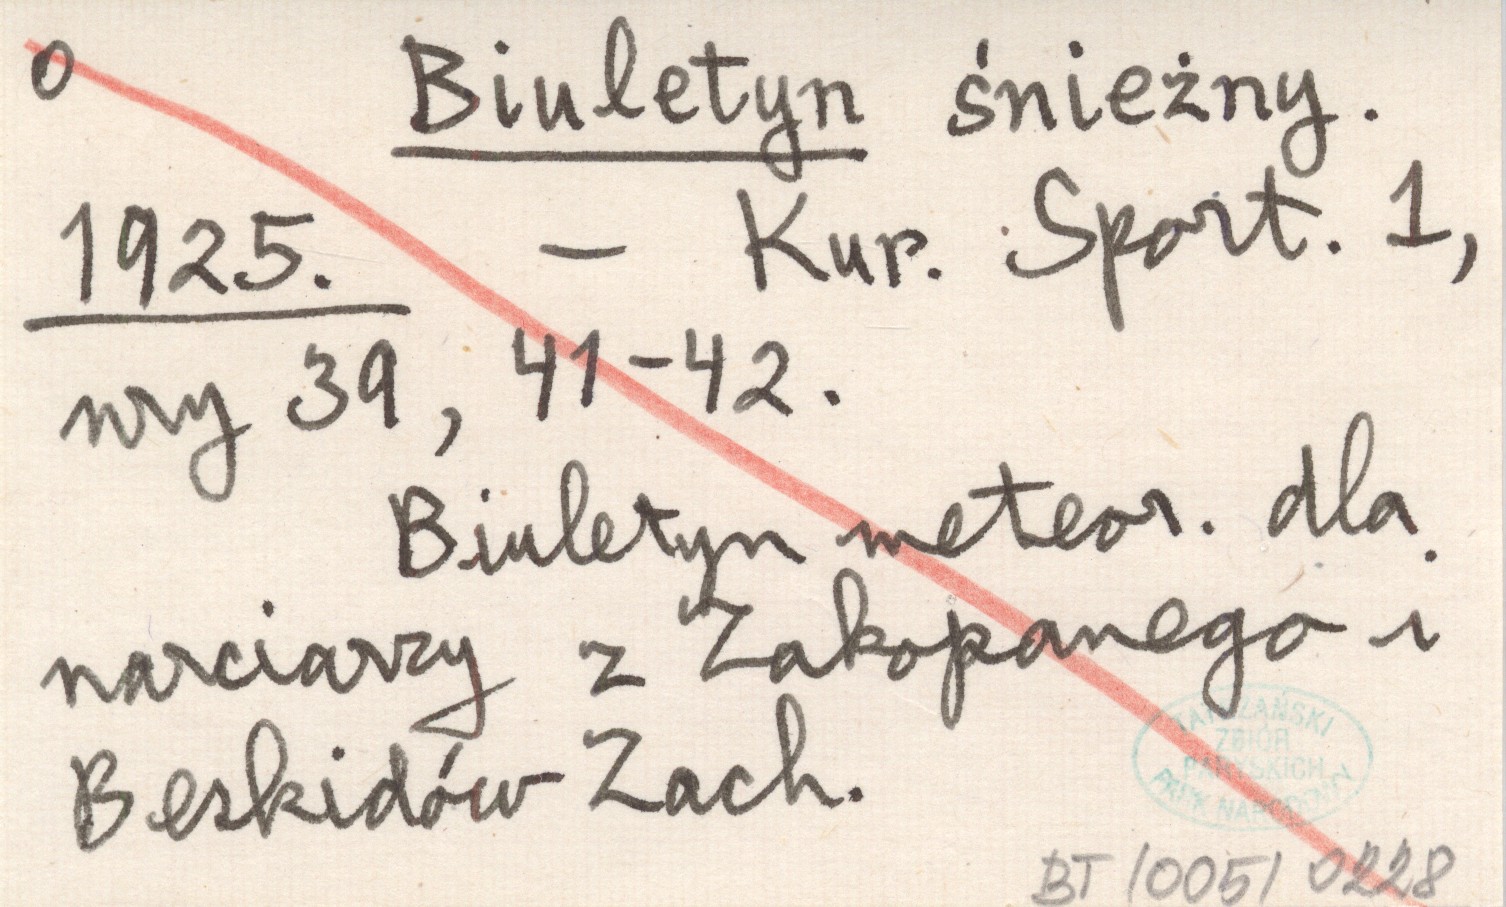 0 Biuletyn śnieżny.
1925. – Kur. Sport. 1,
nry 39, 41-42.
Biuletyn meteor. dla
narciarzy z Zakopanego i
Beskidów Zach.
TATRZAŃSKI
ZBIÓR
PARYSKICH
PARK NARODOWY
BT /005/ 0228